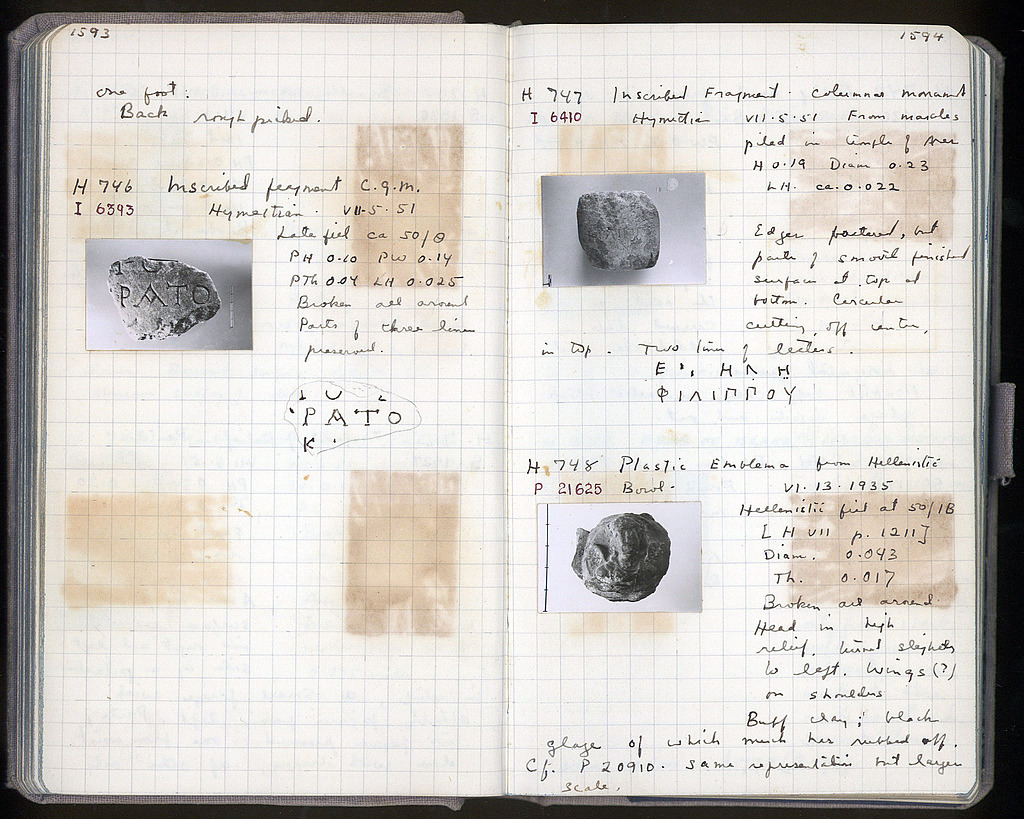 1593
one foot:
Back rough picked.
H 746 Inscribed fragment C.g.m.
I 6393 Hymettian. VII-5-51
Late fill ca 50/Θ
PH 0.10 PW 0.14
PTh 0.04 LH 0.025
Broken all around
Parts of three lines
preserved.
ΡΑΤΟ
Κ
ΡΑΤΟ
1594
H 747 Inscribed Fragment. columnar monument
I 6410 Hymettian VII-5-51 From marbles
piled in temple of Ares
H 0.19 Diam 0.23
LH. ca. 0.022
Edges fractured, but
parts of smooth finished
surfaces at top at
bottom. Circular
cutting, off center,
in top. Two lines of letters.
ΦΙΛΙΠΠΟΥ
H 748 Plastic Emblema from Hellenistic
P 21625 Bowl. VI.13.1935
Hellenistic fill at 50/IB
[H VII p. 1211]
Diam. 0.043
Th. 0.017
Broken all around.
Head in high
relief, turned slightly
to left. Wings (?)
on shoulders
Buff clay; black
glaze of which much has rubbed off.
Cf. P 20910. same representation but larger
scale.